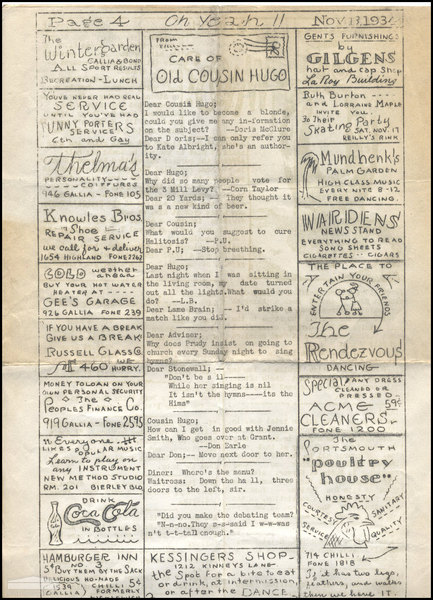 Page 4
Oh Yeah!!
Nov. 13, 1934
The
Wintergarden
GALLIA & BOND
ALL SPORT RESULTS
RECREATION - LUNCH
YOU'VE NEVER HAD REAL
SERVICE
UNTIL YOU'VE HAD
SERVICE
6th and Gay
Thelma's
PERSONALITY
COIFFURES
146 GALLIA - FONE 105
Knowles Bros.
Shoe
REPAIR SERVICE
we call for & deliver
1654 HIGHLAND FONE 2262
COLD weather
ahead
BUY YOUR HOT WATER
HEATER AT
GEE'S GARAGE
926 GALLIA FONE 239
IF YOU HAVE A BREAK
GIVE US A BREAK
RUSSELL GLASS CO.
460 HURRY.
MONEY TO LOAN ON YOUR
OWN PERSONAL SECURITY
The
PEOPLES FINANCE CO.
919 GALLIA - FONE 2595
Everyone
LIKES POPULAR MUSIC
Learn to play on
any INSTRUMENT
NEW METHOD STUDIO
RM. 201 BIERLEY BLD
DRINK
Coca-Cola
IN BOTTLES
HAMBURGER INN
NO. 3
5¢ BUY THEM BY THE SACK 5¢
DELICIOUS HO-NADS
1539 CHILLI
GALLIA FORMERLY
FROM
CARE OF
Old COUSIN HUGO
Dear Cousin Hugo;
I would like to become a blonde,
could you give me any in-formation
on the subject? --Doris McClure
Dear Doris;--I can only refer you
to Kate Albright, she's an autho-
rity.
Dear Hugo;
Why did so many people vote for
the 3 Mill Levy? --Corn Taylor
Dear 20 Yards; -- They thought it
was a new kind of beer.
Dear Cousin;
What would you suggest to cure
Halitosis? --P.U.
Dear P.U; --Stop breathing.
Dear Hugo;
Last night when I was sitting in
the living room, my date turned
out all the lights.What would you
do? --L.B.
Dear Lame Brain; -- I'd strike a
match like you did.
Dear Adviser;
Why does Prudy insist on going to
church every Sunday night to sing
hymns?
Dear Stonewall; --
"Don't be a ill----
While her singing is nil
It isn't the hymns----its the
Hims"
Cousin Hugo:
How can I get in good with Jennie
Smith, Who goes over at Grant.
--Don Darle
Dear Don;-- Move next door to her.
Diner: Where's the menu?
Waitress: Down the hall, three
doors to the left, sir.
"Did you make the debating team?
"N-n-no.They s-s-said I w-w-was
n't t-t-tall enough."
KESSINGERS SHOP
1212 KINNEYS LANE
the Spot for a bite to eat
or drink, at intermission,
or after the DANCE
GENTS FURNISHINGS
by
GILGENS
hat and cap Shop
La Roy Building
Ruth Burton
and LORRAINE MAPLE
INVITE YOU
To Their Party
Skating SAT. NOV. 17
REILLY'S RINK
Mundhenk's
PALM GARDEN
HIGH CLASS MUSIC
EVERY NITE 8-12
FREE DANCING.
WARDENS
NEWS STAND
EVERYTHING TO READ
SONG SHEETS
CIGARETTES -- CIGARS
THE PLACE TO
ENTERTAIN YOUR FRIENDS
The
Rendezvous
DANCING
Special ANY DRESS
CLEANED OR
PRESSED
59¢
ACME
CLEANERS
FONE 1200
The
PORTSMOUTH
"poultry
house"
HONESTY
COURTESY
SANITARY
SERVICE
QUALITY
714 CHILLI
FONE 1818
If it has two legs,
feathers, and wates